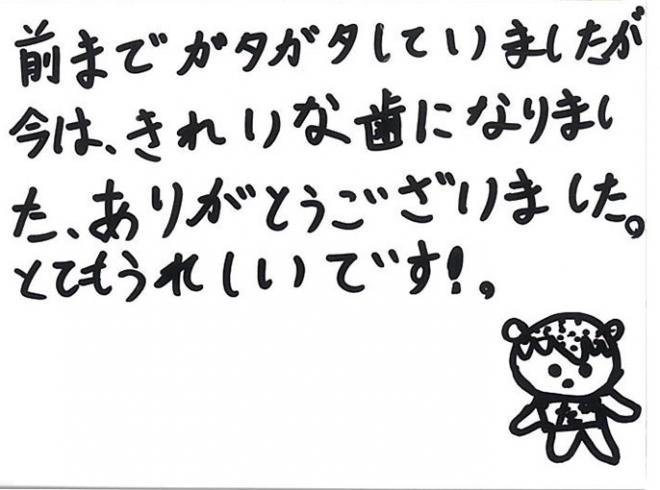 前までガタガタしていましたが
今は、きれいな歯になりまし
た、ありがとうございました。
とてもうれしいです!。
た